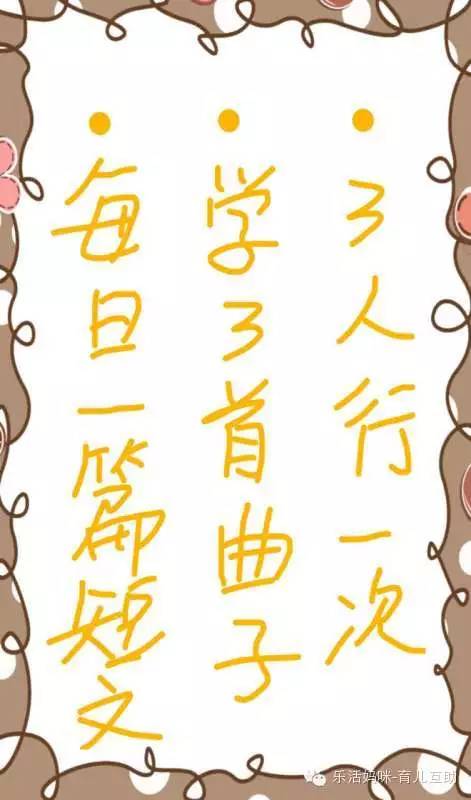 3人行一次
学3首曲子
每旦一篇短文
乐活妈咪-育儿互助